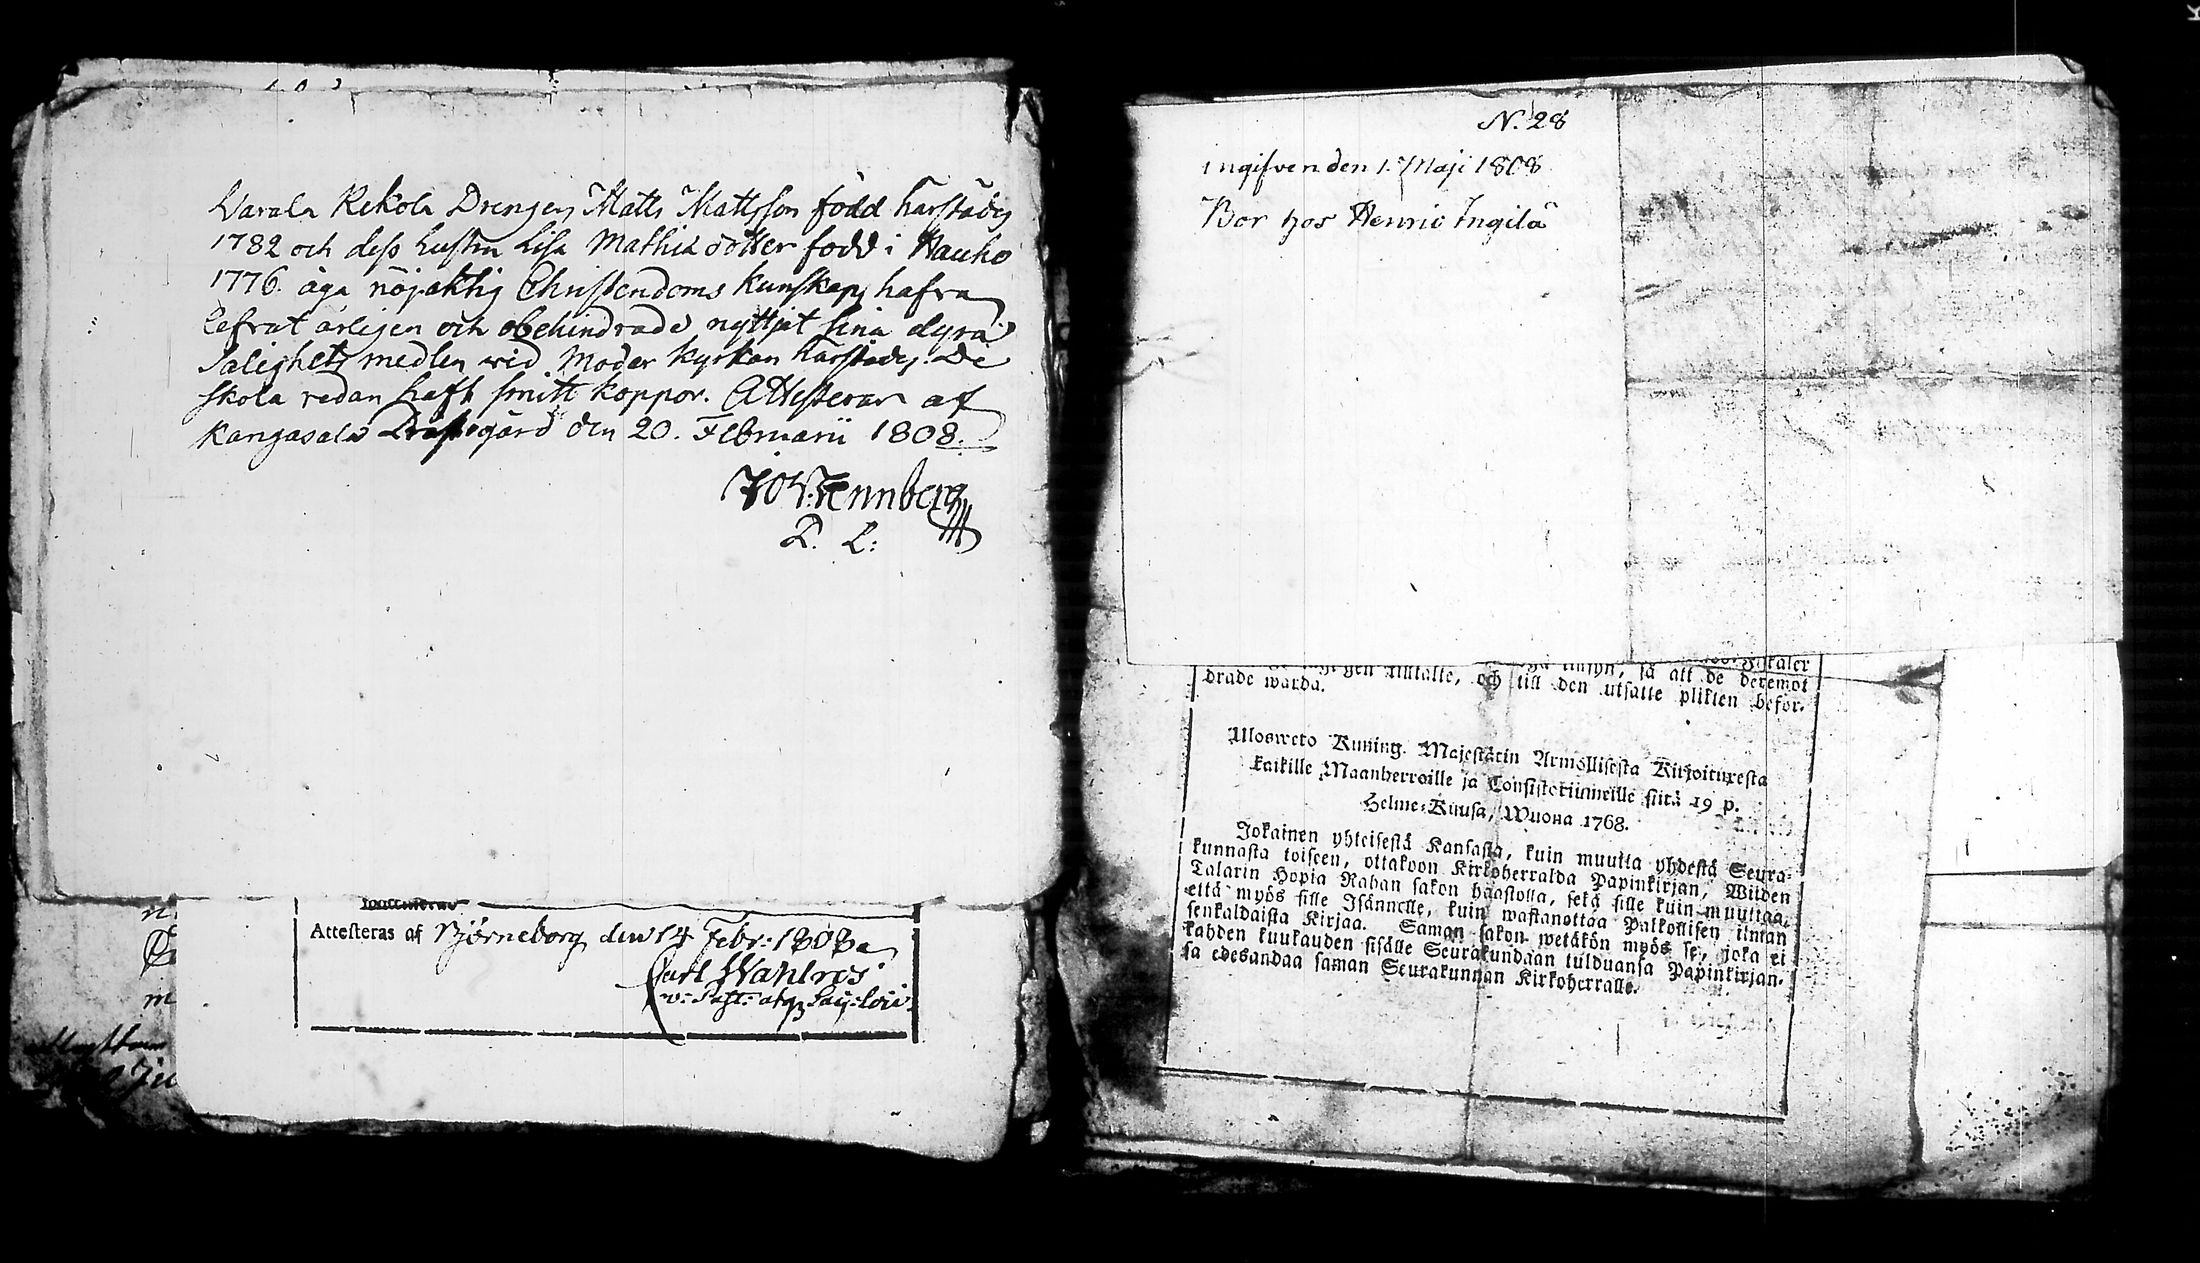 Warala Rekola Drengen Matts Mattsson född härstädes
1782 och dess hustru Lisa Mathiædotter född i Hauho
1776. äga nöjaktig Christendoms kunskap, hafva
lefvat ärligen och obehindrade nyttjat sina dyra
Salighets medlen wid Moder kyrkan härstädes. De
skola redan haft smitt koppor. Attesterar af
Kangasala Prästegård den 20. Februarii 1808.
Wennberg
P. L:
Attesteras af Björneborg den 14 Febr: 1808 a
Carl Wahlroos
v: Past: atq
N. 28
ingifven den 1. Maji 1808
Bor hos Henric Ingilä
tilltalte, och till den utsatte plikten beför-
så att de deremot
drade warda.
Ulosweto Kuning. Majestätin Armollisesta Kirjoituxesta
kaikille Maanherroille ja Consistoriumeille siitä 19 p.
Helme-Kuusa, Wuona 1768.
Jokainen yhteisestä Kansasta, kuin muutta yhdestä Seura-
kunnasta toiseen, ottakoon Kirkoherralda Papinkirjan, Wiiden
Talarin Hopia Rahan sakon haastolla, sekä sille kuin muuttaa,
että myös sille Isännelle, kuin wastanottaa Palkollisen ilman
senkaldaista Kirjaa. Saman sakon wetäkön myös se, joka ei
kahden kuukauden sisälle Seurakundaan tulduansa Papinkirjan-
sa edesandaa saman Seurakunnan Kirkoherralle.